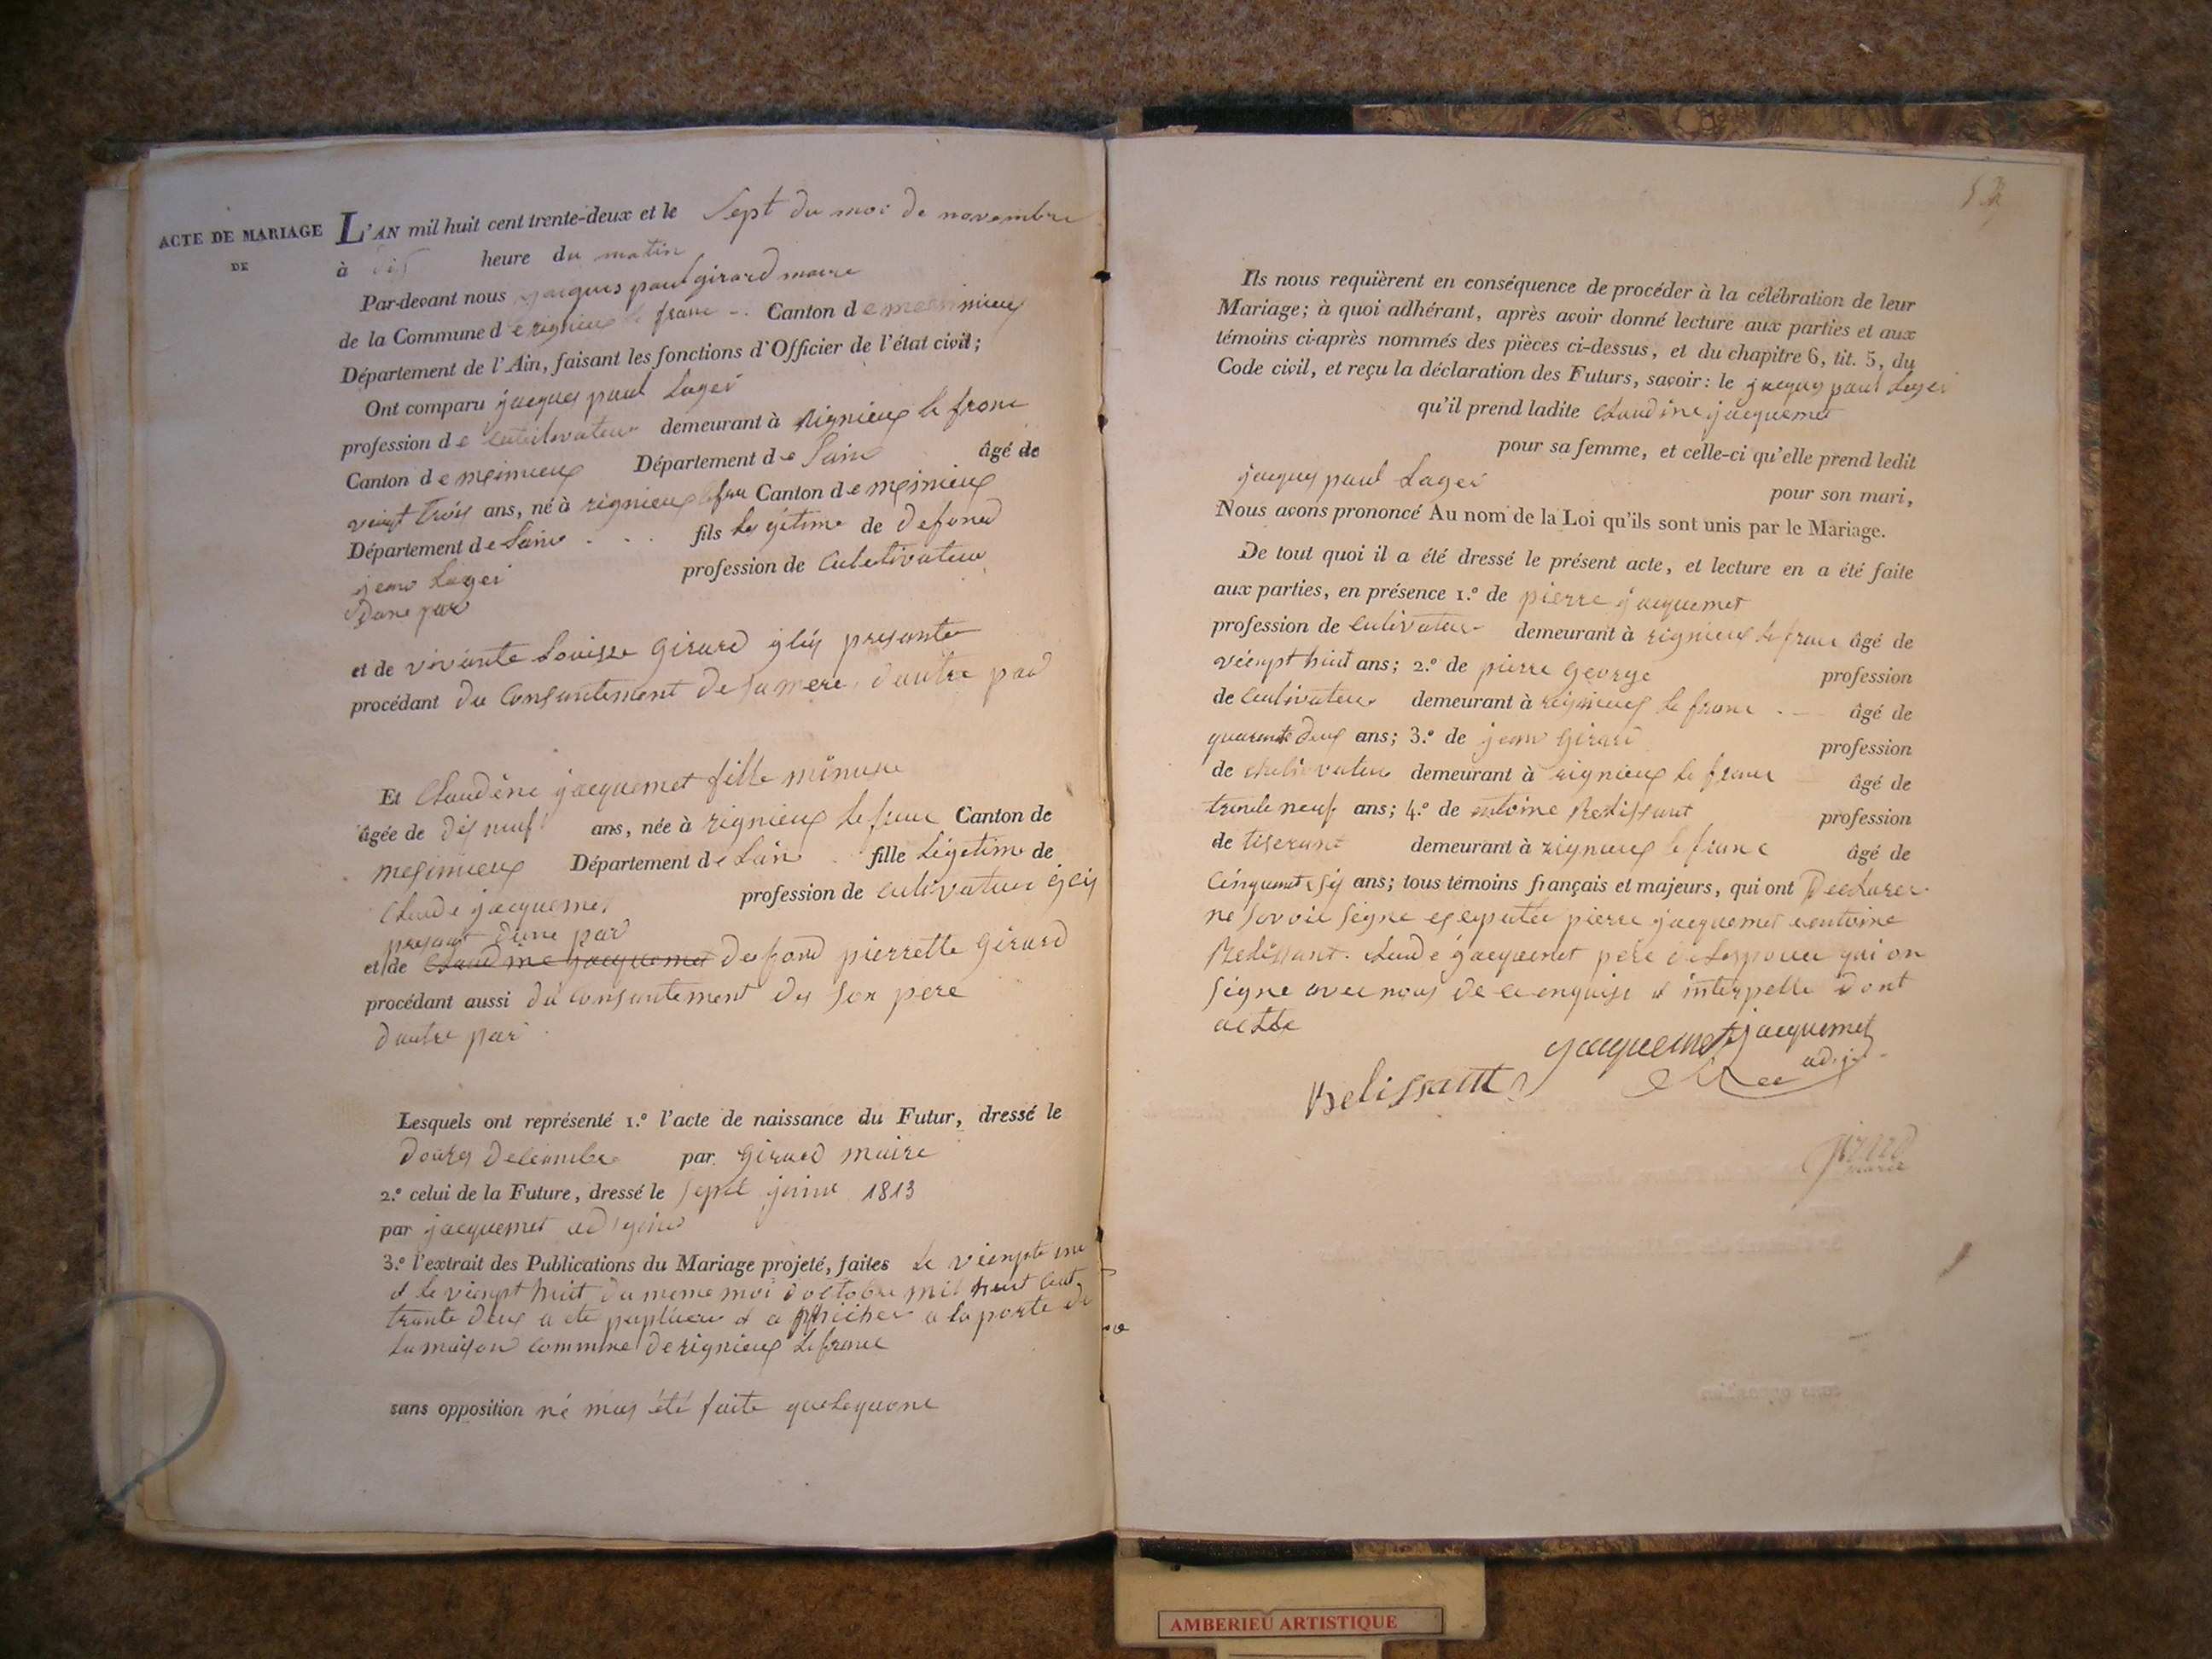 ACTE DE MARIAGE
DE
L'AN mil huit cent trente-deux et le Sept du moi de novembre
à dis heure du matin
Par-devant nous jacques paul girard maire
de la Commune de rignieux le franc Canton de messimieux
Département de l'Ain, faisant les fonctions d'Officier de l'état civil;
Ont comparu jacques paul Lager
profession de demeurant à Rignieux le franc
Canton de Département de Lain âgé de
veingt trois ans, né à rignieux le fran Canton de
Département de Lain fils Legetime de defond
jean Lager profession de Culetivateur
Dune par
et de vivante Louisse Girard présante
procédant du Consantement de sa mere, dautre par
Et Claudine jacquemet fille minure
âgée de dis neuf ans, née à rignieux le franc Canton de
mesimieux Département de Lain fille Légetime de
Claude jacquemet profession de culivateur
presant dune par
et de Claudine jacquemet defond pierrette Girard
procédant aussi du Consantement des son pere
dautre par
Lesquels ont représenté 1.º l'acte de naissance du Futur, dressé le
par Girard maire
2.º celui de la Future, dressé le sept juin 1813
par jacquemet
3.º l'extrait des Publications du Mariage projeté, faites Le
et le vienpt huit du meme moi doctobre mil huit Cent
trante deux a été et a a la porte de
La maison commune de rignieux Le franc
sans opposition né été faite quelequone
Ils nous requièrent en conséquence de procéder à la célébration de leur
Mariage; à quoi adhérant, après avoir donné lecture aux parties et aux
témoins ci-après nommés des pièces ci-dessus, et du chapitre 6, tit. 5, du
Code civil, et reçu la déclaration des Futurs, savoir: le jacques paul Lager
qu'il prend ladite Claudine jacquemet
pour sa femme, et celle-ci qu'elle prend ledit
jacques paul Lager pour son mari,
Nous avons prononcé Au nom de la Loi qu'ils sont unis par le Mariage.
De tout quoi il a été dressé le présent acte, et lecture en a été faite
aux parties, en présence 1.º de pierre jacquemet
profession de Culivateur demeurant à rignieux le franc âgé de
veienpt huit ans; 2.º de pierre George profession
de Culivateur demeurant à rignieux le franc âgé de
quarente deux ans; 3.º de jean Girard profession
de demeurant à rignieux le franc âgé de
trente neuf ans; 4.º de antoine profession
de tiserant demeurant à rignieux le franc âgé de
Cinquente six ans; tous témoins français et majeurs, qui ont Declarer
ne savoir signe pierre jacquemet antoine
Claude jacquemet pere qui on
signe avec nous de ce enquise et interpelle Dont
actte
jacquemet jacquemet
adj
Belissant
Girard
maire
AMBERIEU ARTISTIQUE